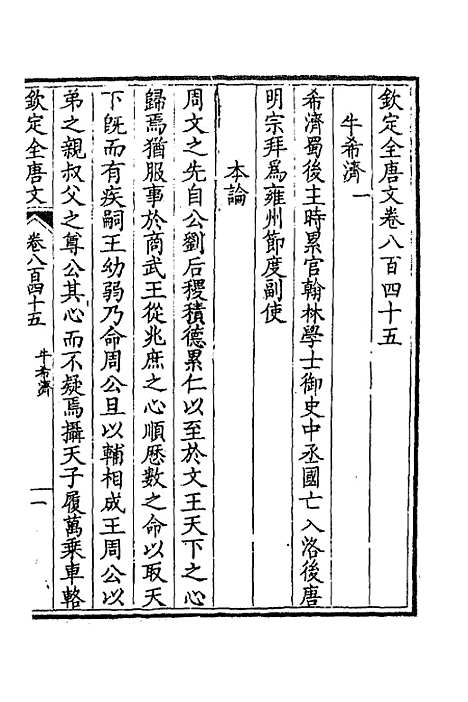 欽定全唐文卷八百四十五
牛希濟一
希濟蜀後主時累官翰林學士御史中丞國亡入洛後唐
明宗拜爲雍州節度副使
本論
周文之先自公劉后稷積德累仁以至於文王天下之心
歸焉猶服事於商武王從兆庶之心順厯數之命以取天
下旣而有疾嗣王幼弱乃命周公旦以輔相成王周公以
弟之親叔父之尊公其心而不疑焉攝天子履萬乘車輅
欽定全唐文 卷八百四十五 牛希濟 一